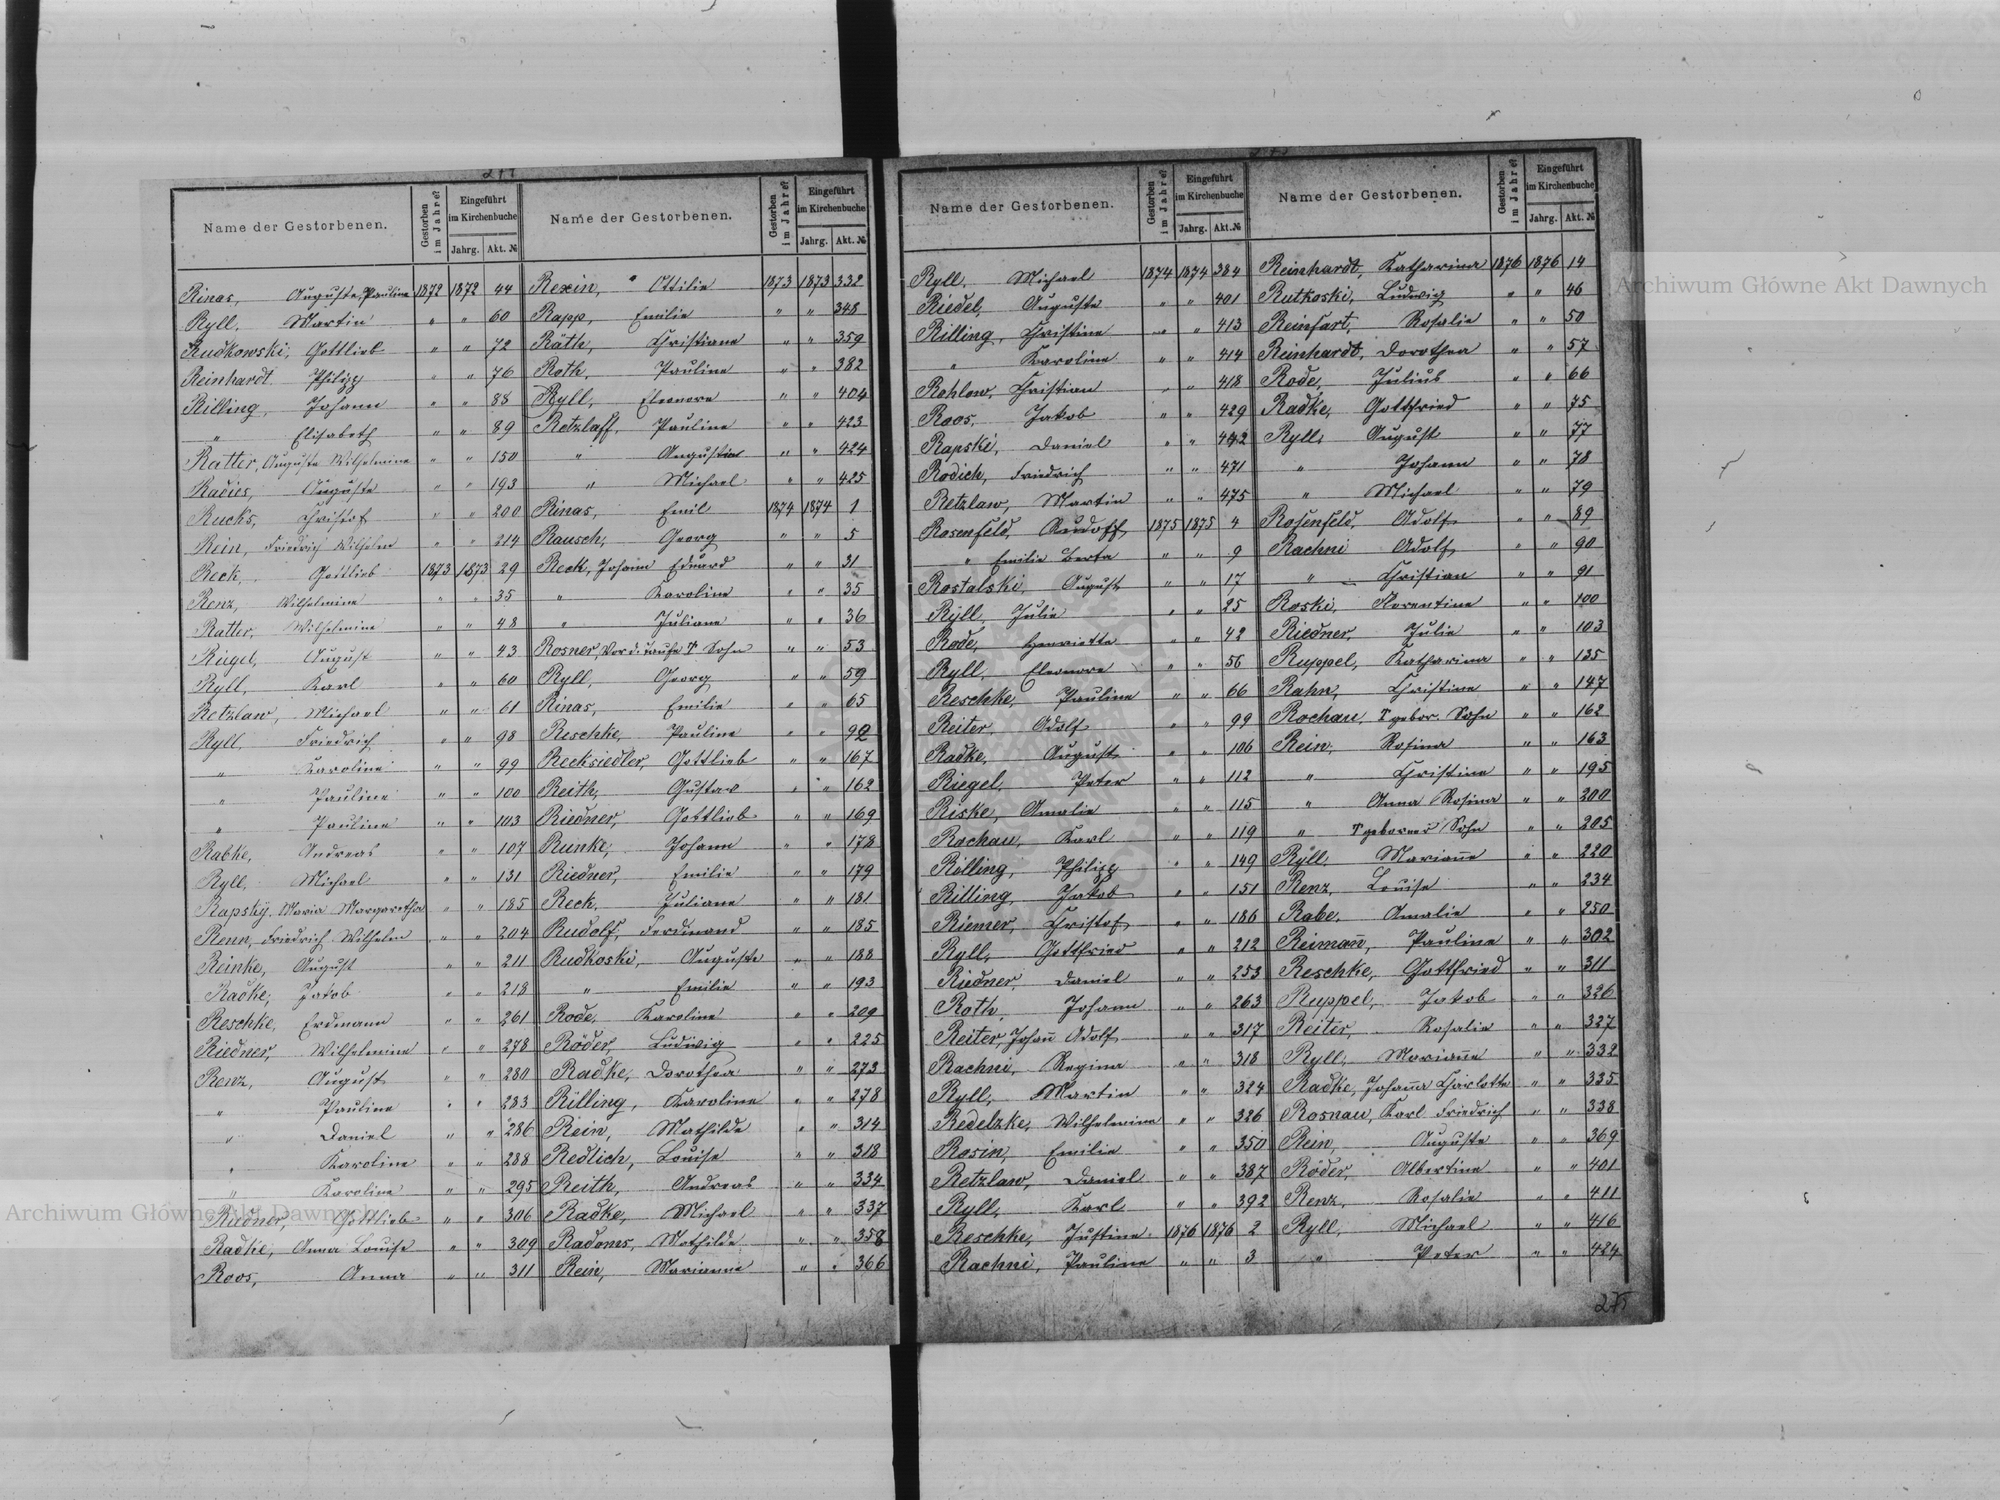 Name der Gestorbenen. Gestorben im Jahre? Eingeführt im Kirchenbuche Jahrg. Akt. №
Rinas, Auguste, Pauline 1872 1872 44
Ryll, Martin " " 60
Rudkowski, Gottlieb " " 72
Reinhardt Philipp " " 76
Rilling, Johann " " 88
" Elisabeth " " 89
Ratter, Auguste Wilhelmine " " 150
Radies, Auguste " " 193
Rucks, Christof " " 200
Rein, Friedrich Wilhelm " " 214
Reck, Gottlieb 1873 1873 29
Renz, Wilhelmine " " 35
Ratter, Wilhelmine " " 48
Riegel, August " " 43
Ryll, Karl " " 60
Retzlaw, Michael " " 61
Ryll, Friedrich " " 98
" Karoline " " 99
" Pauline " " 100
" Pauline " " 103
Rabke, Andreas " " 107
Ryll, Michael " " 131
Rapsky, Maria Margaretha " " 185
Renn, Friedrich Wilhelm " " 204
Reinke, August " " 211
Radke, Jakob " " 218
Reschke, Erdmann " " 261
Riedner, Wilhelmine " " 278
Renz, August " " 280
" Pauline " " 283
" Daniel " " 286
" Karoline " " 288
" Karoline " " 295
Riedner, Gottlieb " " 306
Radke, Anna Louise " " 309
Roos, Anna " " 311
Name der Gestorbenen. Gestorben im Jahre? Eingeführt im Kirchenbuche Jahrg. Akt. №
Rexin, Ottilie 1873 1873 332
Rapp, Emilie " " 348
Räth, Christiane " " 359
Roth, Pauline " " 382
Ryll, Eleonore " " 404
Retzlaff, Pauline " " 423
" Augustin " " 424
" Michael " " 425
Rinas, Emil 1874 1874 1
Rausch, Georg " " 5
Reck, Johann Eduard " " 31
" Karoline " " 35
" Juliane " " 36
Rosner, Vor d. Taufe † Sohn " " 53
Ryll, Georg " " 59
Rinas, Emilie " " 65
Reschke, Pauline " " 92
Recksiedler, Gottlieb " " 167
Reith, Gustav " " 162
Riedner, Gottlieb " " 169
Runke, Johann " " 178
Riedner, Emilie " " 179
Reck, Juliane " " 181
Rudolf, Ferdinand " " 185
Rudkoski, Auguste " " 188
" Emilie " " 193
Rode, Karoline " " 209
Röder, Ludwig " " 225
Radke, Dorothea " " 273
Rilling, Karoline " " 278
Rein, Mathilde " " 314
Redlich, Louise " " 318
Reith, Andreas " " 334
Radke, Michael " " 337
Radoms, Mathilde " " 358
Rein, Marianne " " 366
Name der Gestorbenen. Gestorben im Jahre? Eingeführt im Kirchenbuche Jahrg. Akt. №
Ryll, Michael 1874 1874 384
Riedel, Auguste " " 401
Rilling, Christine " " 413
" Karoline " " 414
Rohlow, Christian " " 418
Roos, Jakob " " 429
Rapski, Daniel " " 442
Rodich, Friedrich " " 471
Retzlaw, Martin " " 475
Rosenfeld, Rudolf 1875 1875 4
" Emilie Berta " " 9
Rostalski, August " " 17
Ryll, Julie " " 25
Rode, Henriette " " 42
Ryll, Eleonore " " 56
Reschke, Pauline " " 66
Reiter, Adolf " " 99
Radke, August " " 106
Riegel, Peter " " 112
Riske, Amalie " " 115
Rochau, Karl " " 119
Rilling, Philipp " " 149
Rilling, Jakob " " 151
Riemer, Christof " " 186
Ryll, Gottfried " " 212
Riedner, Daniel " " 253
Roth, Johann " " 263
Reiter, Johañ Adolf " " 317
Rachni, Regina " " 318
Ryll, Martin " " 324
Redelzke, Wilhelmine " " 326
Rosin, Emilie " " 350
Retzlaw, Daniel " " 387
Ryll, Karl " " 392
Reschke, Justine 1876 1876 2
Rachni, Pauline " " 3
Name der Gestorbenen. Gestorben im Jahre? Eingeführt im Kirchenbuche Jahrg. Akt. №
Reinhardt, Katharina 1876 1876 14
Rutkoski, Ludwig " " 46
Reinhart, Rosalie " " 50
Reinhardt, Dorothea " " 57
Rode, Julius " " 66
Radke, Gottfried " " 75
Ryll, August " " 77
" Johann " " 78
" Michael " " 79
Rosenfeld, Adolf " " 89
Rachni Adolf " " 90
" Christian " " 91
Roski, Florentine " " 100
Riedner, Julie " " 103
Ruppel, Katharina " " 135
Rahn, Christine " " 147
Rochau, † gebor. Sohn " " 162
Rein, Rosina " " 163
" Christine " " 195
" Anna Rosina " " 200
" † geborner Sohn " " 205
Ryll, Mariañe " " 220
Renz, Louise " " 234
Rabe, Amalie " " 250
Reimañ, Pauline " " 302
Reschke, Gottfried " " 311
Ruppel, Jakob " " 326
Reiter, Rosalie " " 327
Ryll, Mariañe " " 332
Radke, Johaña Charlotte " " 335
Rosnau, Karl Friedrich " " 338
Rein, Auguste " " 369
Röder, Albertine " " 401
Renz, Rosalie " " 411
Ryll, Michael " " 416
" Peter " " 424
275
Archiwum Główne Akt Dawnych
Archiwum Główne Akt Dawnych